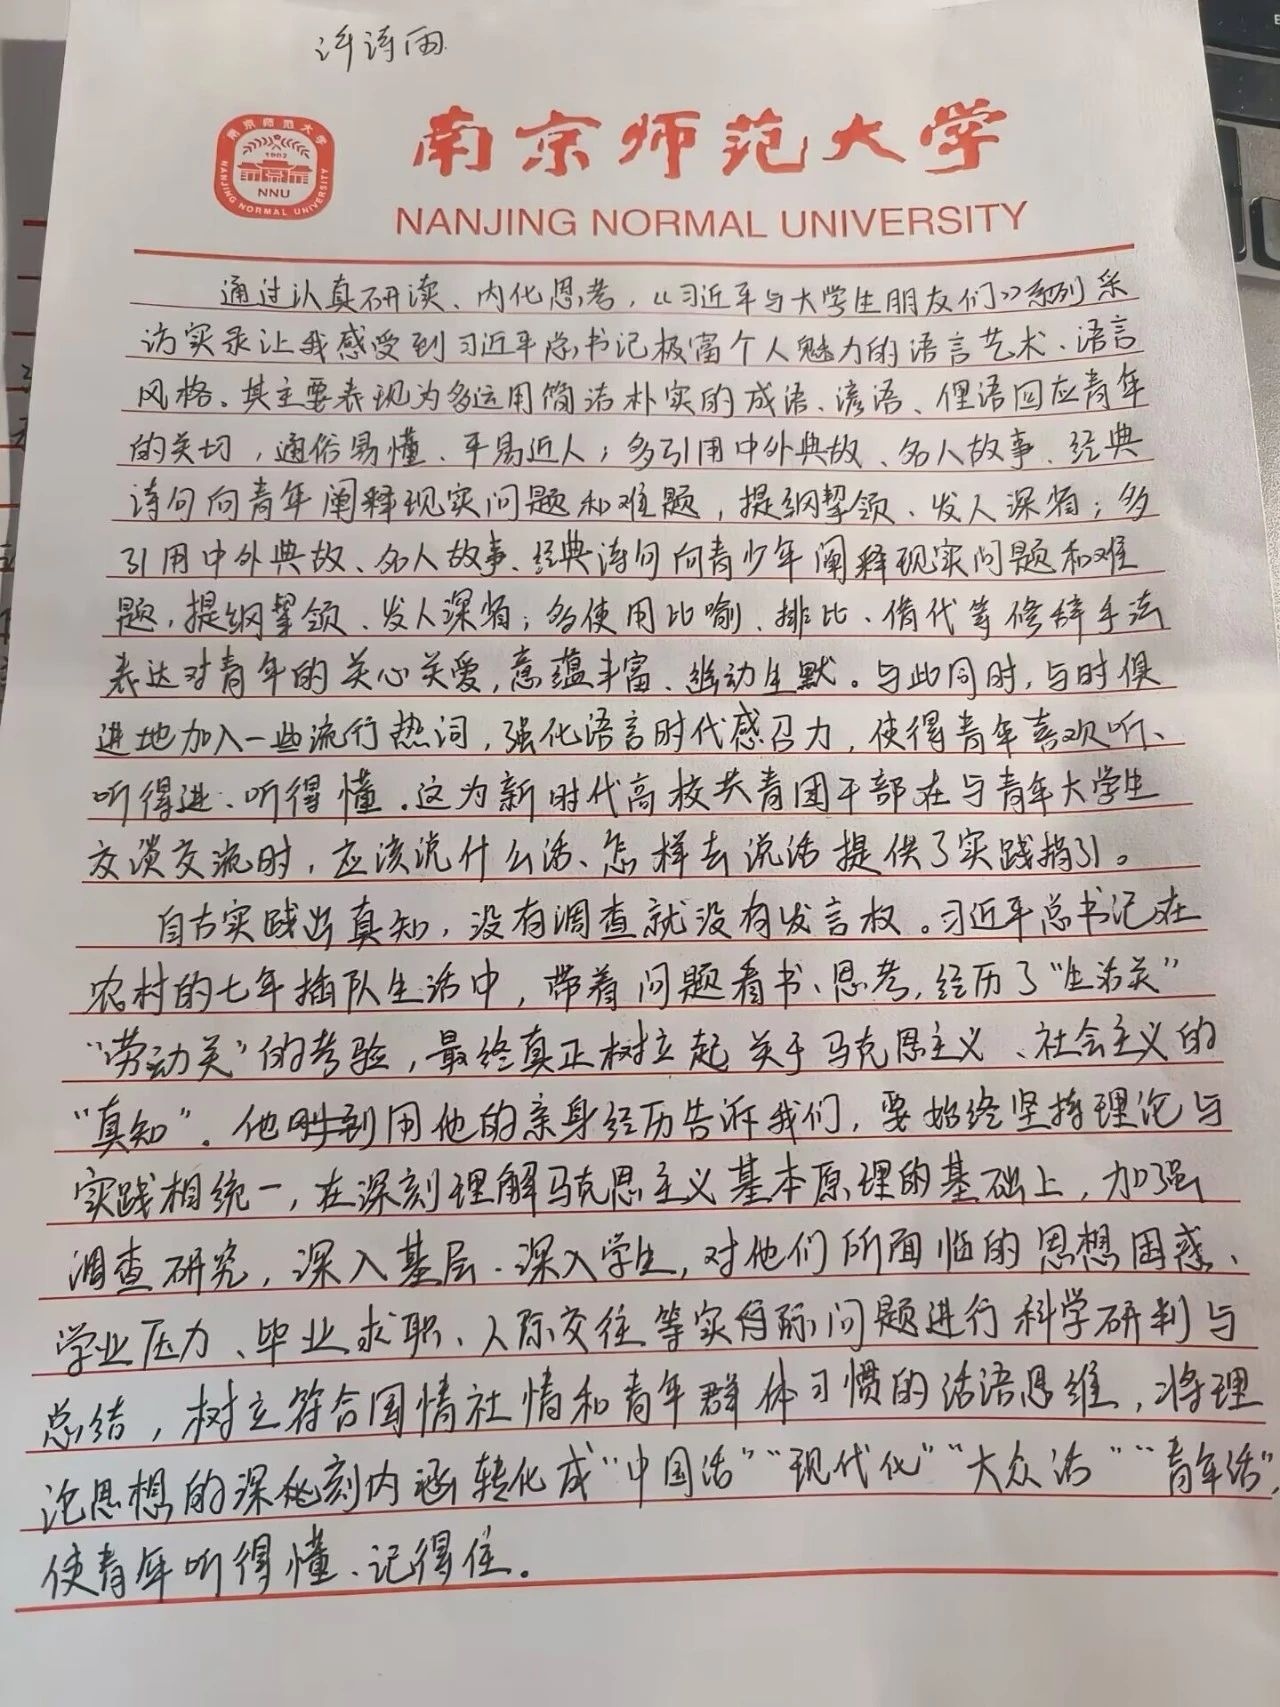 许诗雨
南京师范大学
NANJING NORMAL UNIVERSITY
南京师范大学
1902
NNU
NANJING NORMAL UNIVERSITY
通过认真研读、内化思考,《习近平与大学生朋友们》系列采
访实录让我感受到习近平总书记极富个人魅力的语言艺术、语言
风格。其主要表现为多运用简洁朴实的成语、谚语、俚语回应青年
的关切,通俗易懂、平易近人;多引用中外典故、名人故事、经典
诗句向青年阐释现实问题和难题,提纲挈领、发人深省;多
引用中外典故、名人故事、经典诗句向青少年阐释现实问题和难
题,提纲挈领、发人深省;多使用比喻、排比、借代等修辞手法
表达对青年的关心关爱,意蕴丰富、幽动生默。与此同时,与时俱
进地加入一些流行热词,强化语言时代感召力,使得青年喜欢听、
听得进、听得懂。这为新时代高校共青团干部在与青年大学生
交谈交流时,应该说什么话、怎样去说话提供了实践指引。
自古实践出真知,没有调查就没有发言权。习近平总书记在
农村的七年插队生活中,带着问题看书、思考,经历了“生活关”
“劳动关”的考验,最终真正树立起关于马克思主义、社会主义的
“真知”。他用他的亲身经历告诉我们,要始终坚持理论与
实践相统一,在深刻理解马克思主义基本原理的基础上,加强
调查研究,深入基层、深入学生,对他们所面临的思想困惑、
学业压力、毕业求职、人际交往等实际问题进行科学研判与
总结,树立符合国情社情和青年群体习惯的话语思维,将理
论思想的深刻内涵转化成“中国话”“现代化”“大众话”“青年话”,
使青年听得懂、记得住。